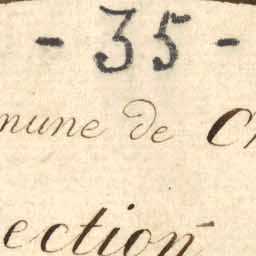 - 35 -
mune de C
ection